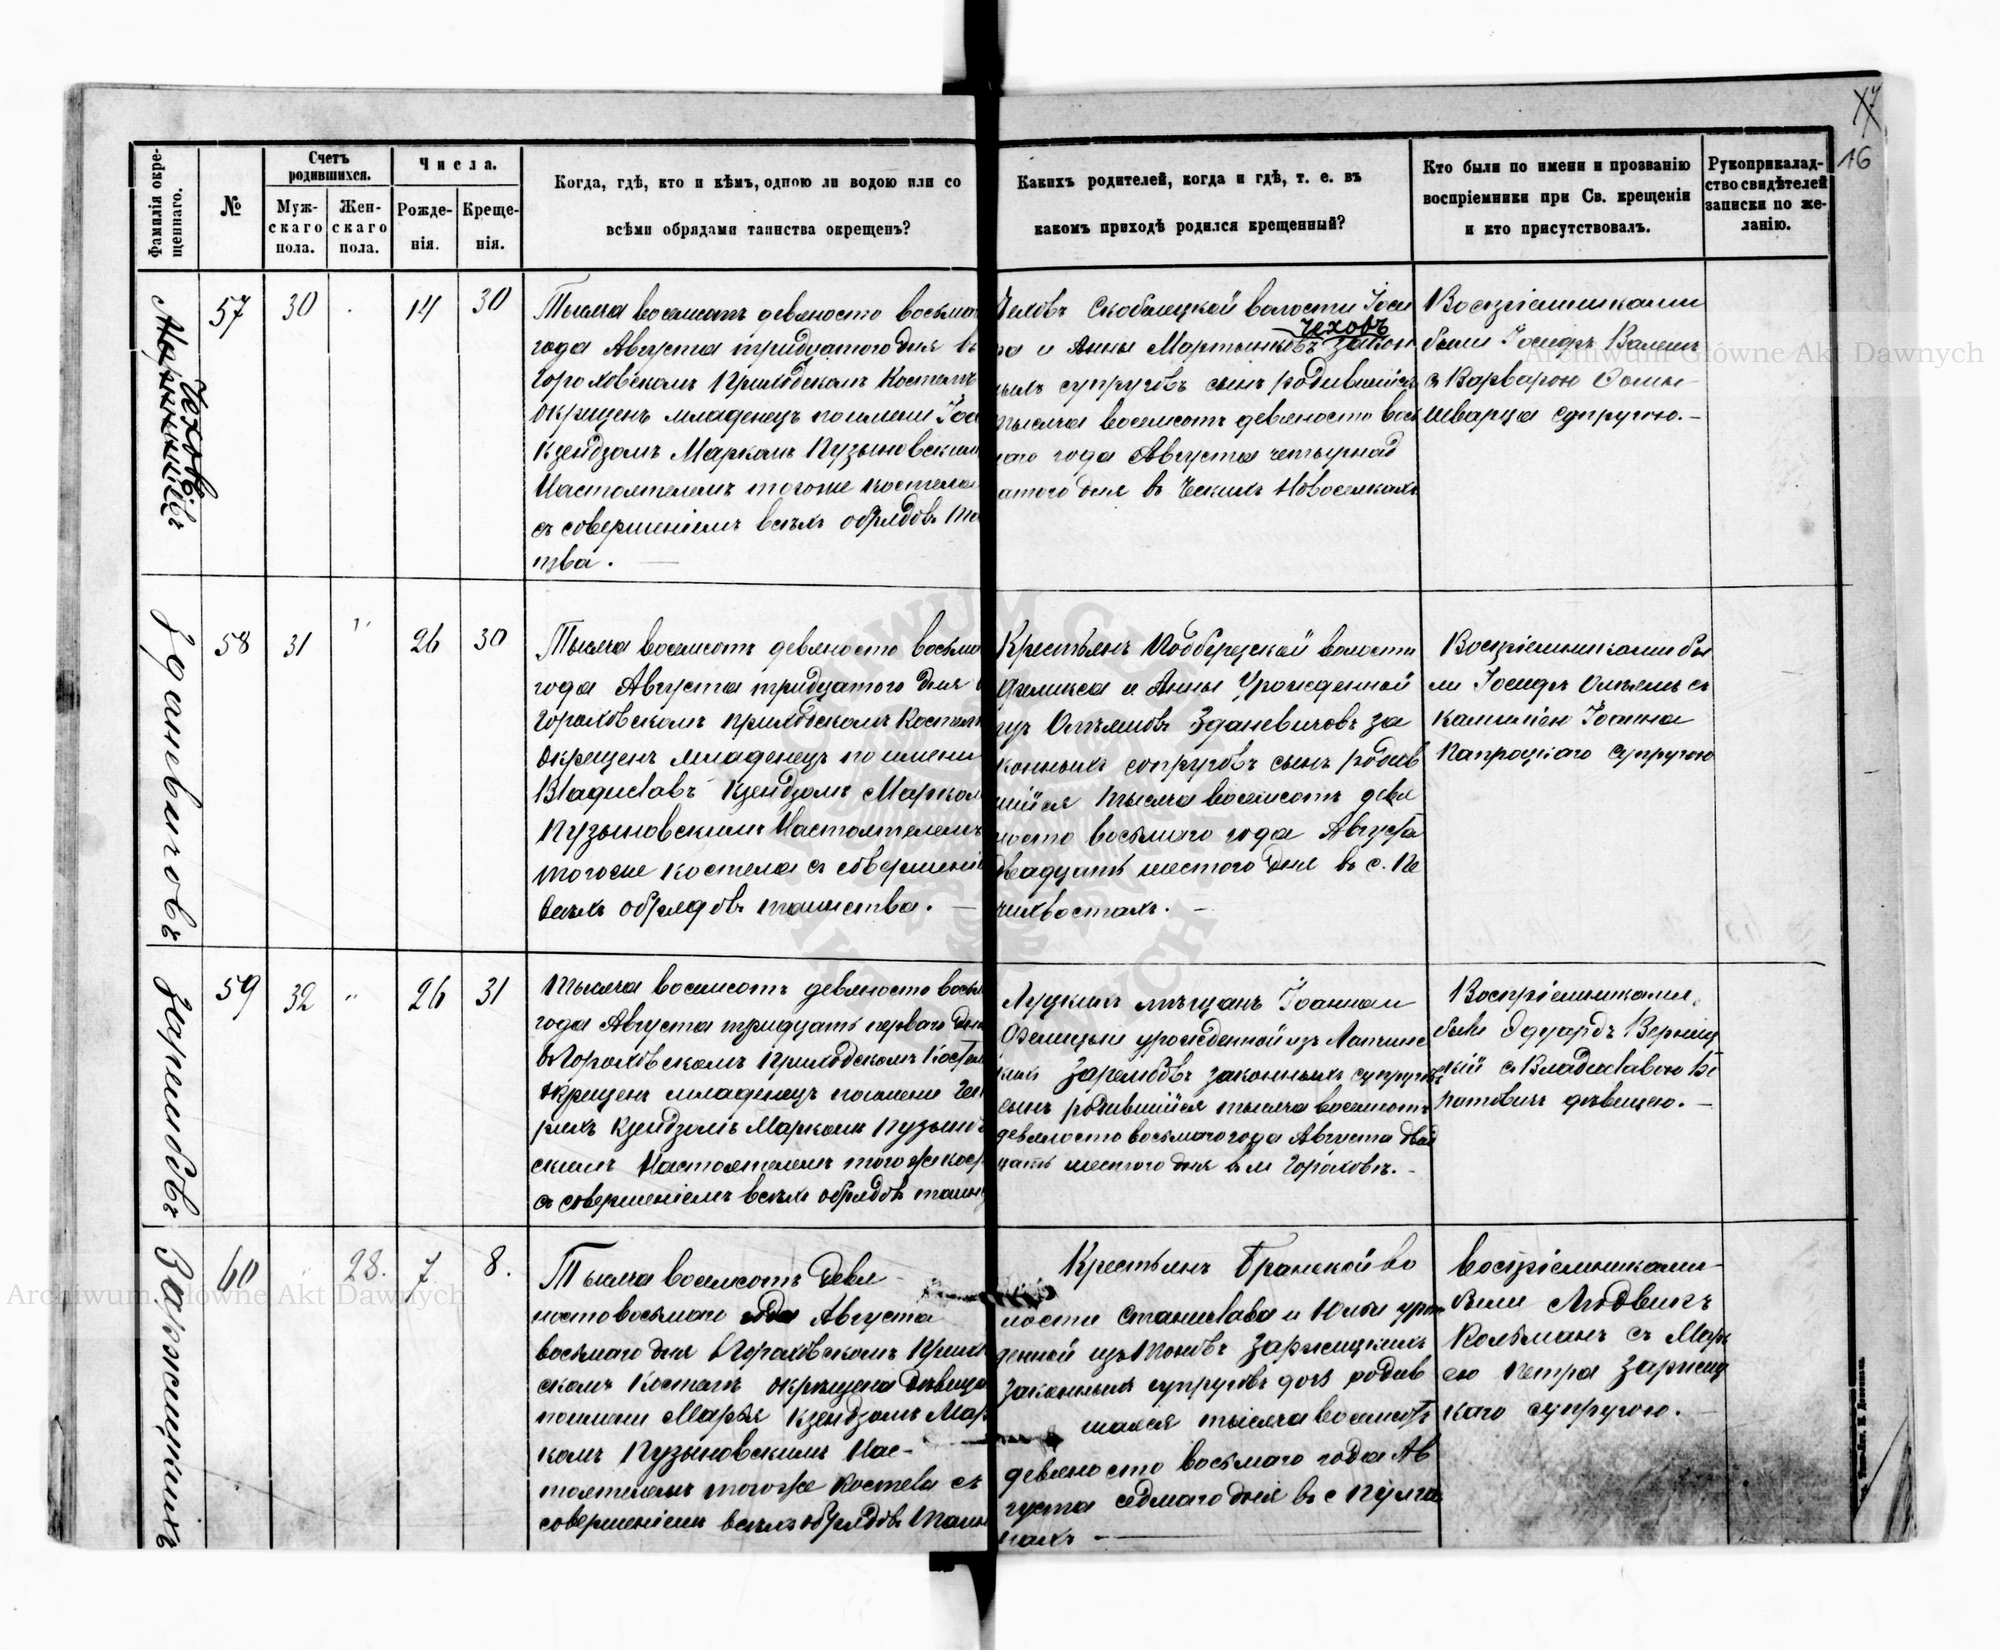 17
16
Фамилія окрещеннаго.
№
Счетъ родившихся.
Мужскаго пола.
Женскаго пола.
Числа.
Рожденія.
Крещенія.
Когда, гдѣ, кто и кѣмъ, одною ли водою или со
всѣми обрядами таинства окрещенъ?
Какихъ родителей, когда и гдѣ, т. е. въ
какомъ приходѣ родился крещенный?
Кто были по имени и прозванію
воспріемники при Св. крещеніи
и кто присутствовалъ.
Рукоприкалад-
ство свидѣтелей
записки по же-
ланію.
Чеховъ
57
30
14
30
Тысяча восемсотъ девяносто восьма
года Августа тридцатого дня въ
Гороховскомъ Приходскомъ Костелѣ
окрещенъ младенецъ по имени
Кзендзомъ Маркомъ Пузыновским
Настоятелемъ тогоже костела
съ совершеніемъ всѣхъ обрядовъ та
ства.
Чеховъ Скобелецкой волости
чеховъ
и Анны Мартынковъ закон
супруговъ сынъ родившійся
тысяча восемсотъ девяносто вось
маго года Августа четырнад
атого дня въ Ческихъ Новоселкахъ
Воспріемниками
были Іосифъ Валент
съ Варварою Фомы
Шварца супругою.
Зданевичовъ
58
31
"
26
30
Тысяча восемсотъ девяносто восьма
года Августа тридцатого дня
Гороховскомъ приходскомъ Костелѣ
окрещенъ младенецъ по имени
Владиславъ Кзендзомъ Марком
Пузыновскимъ Настоятелемъ
тогоже костела съ совершені
всѣхъ обрядовъ таинства.
Крестьянъ Подберезской волости
Феликса и Анны Урожденной
изъ Зданевичовъ за
конныхъ супруговъ сынъ родив
шійся тысяча восемсотъ девя
носто восьмаго года Августа
двадцать шестого дня въ с. Пе
чихвостахъ.
Воспріемниками бы
ли Іосифъ съ
Камиліею Іоанна
Папроцкаго супругою
Зарембовъ
59
32
"
26
31
Тысяча восемсотъ девяносто восьм
года Августа тридцать перваго дня
въ Гороховскомъ Приходскомъ Костел
окрещенъ младенецъ по имени Ген
рихъ Кзендзомъ Маркомъ Пузынов
скимъ Настоятелемъ того же кос
съ совершеніемъ всѣхъ обрядовъ таинс
Луцкихъ мѣщанъ Іоанна и
Фелиціи урожденной изъ
Зарембовъ законныхъ супруговъ
сынъ родившійся тысяча восемсотъ
девяносто восьмаго года Августа двад
цать шестого дня въ м Гороховѣ.
Воспріемниками
были Эдуардъ
съ Владиславою
дѣвицею.
Заржицкихъ
60
28.
7
8.
Тысяча восемсотъ девя
носто восьмаго года Августа
восьмаго дня въ Гороховскомъ Прихо
скомъ Костелѣ окрещена дѣвица
по имени Марья Кзендзомъ Мар
комъ Пузыновскимъ Нас-
тоятелемъ того же Костела съ
совершеніемъ всѣхъ обрядовъ таин
Крестьянъ Бранской во
лости Станислава и Юліи уро
денной изъ Заржицкихъ
законныхъ супруговъ дочь родив
шаяся тысяча восемсотъ
девяносто восьмаго года Ав
густа седмаго дня въ с Пулга
нахъ
воспріемниками
были Людвикъ
Кольманъ съ Марь
ею Петра Заржиц
каго супругою.
Archiwum Główne Akt Dawnych
Archiwum Główne Akt Dawnych